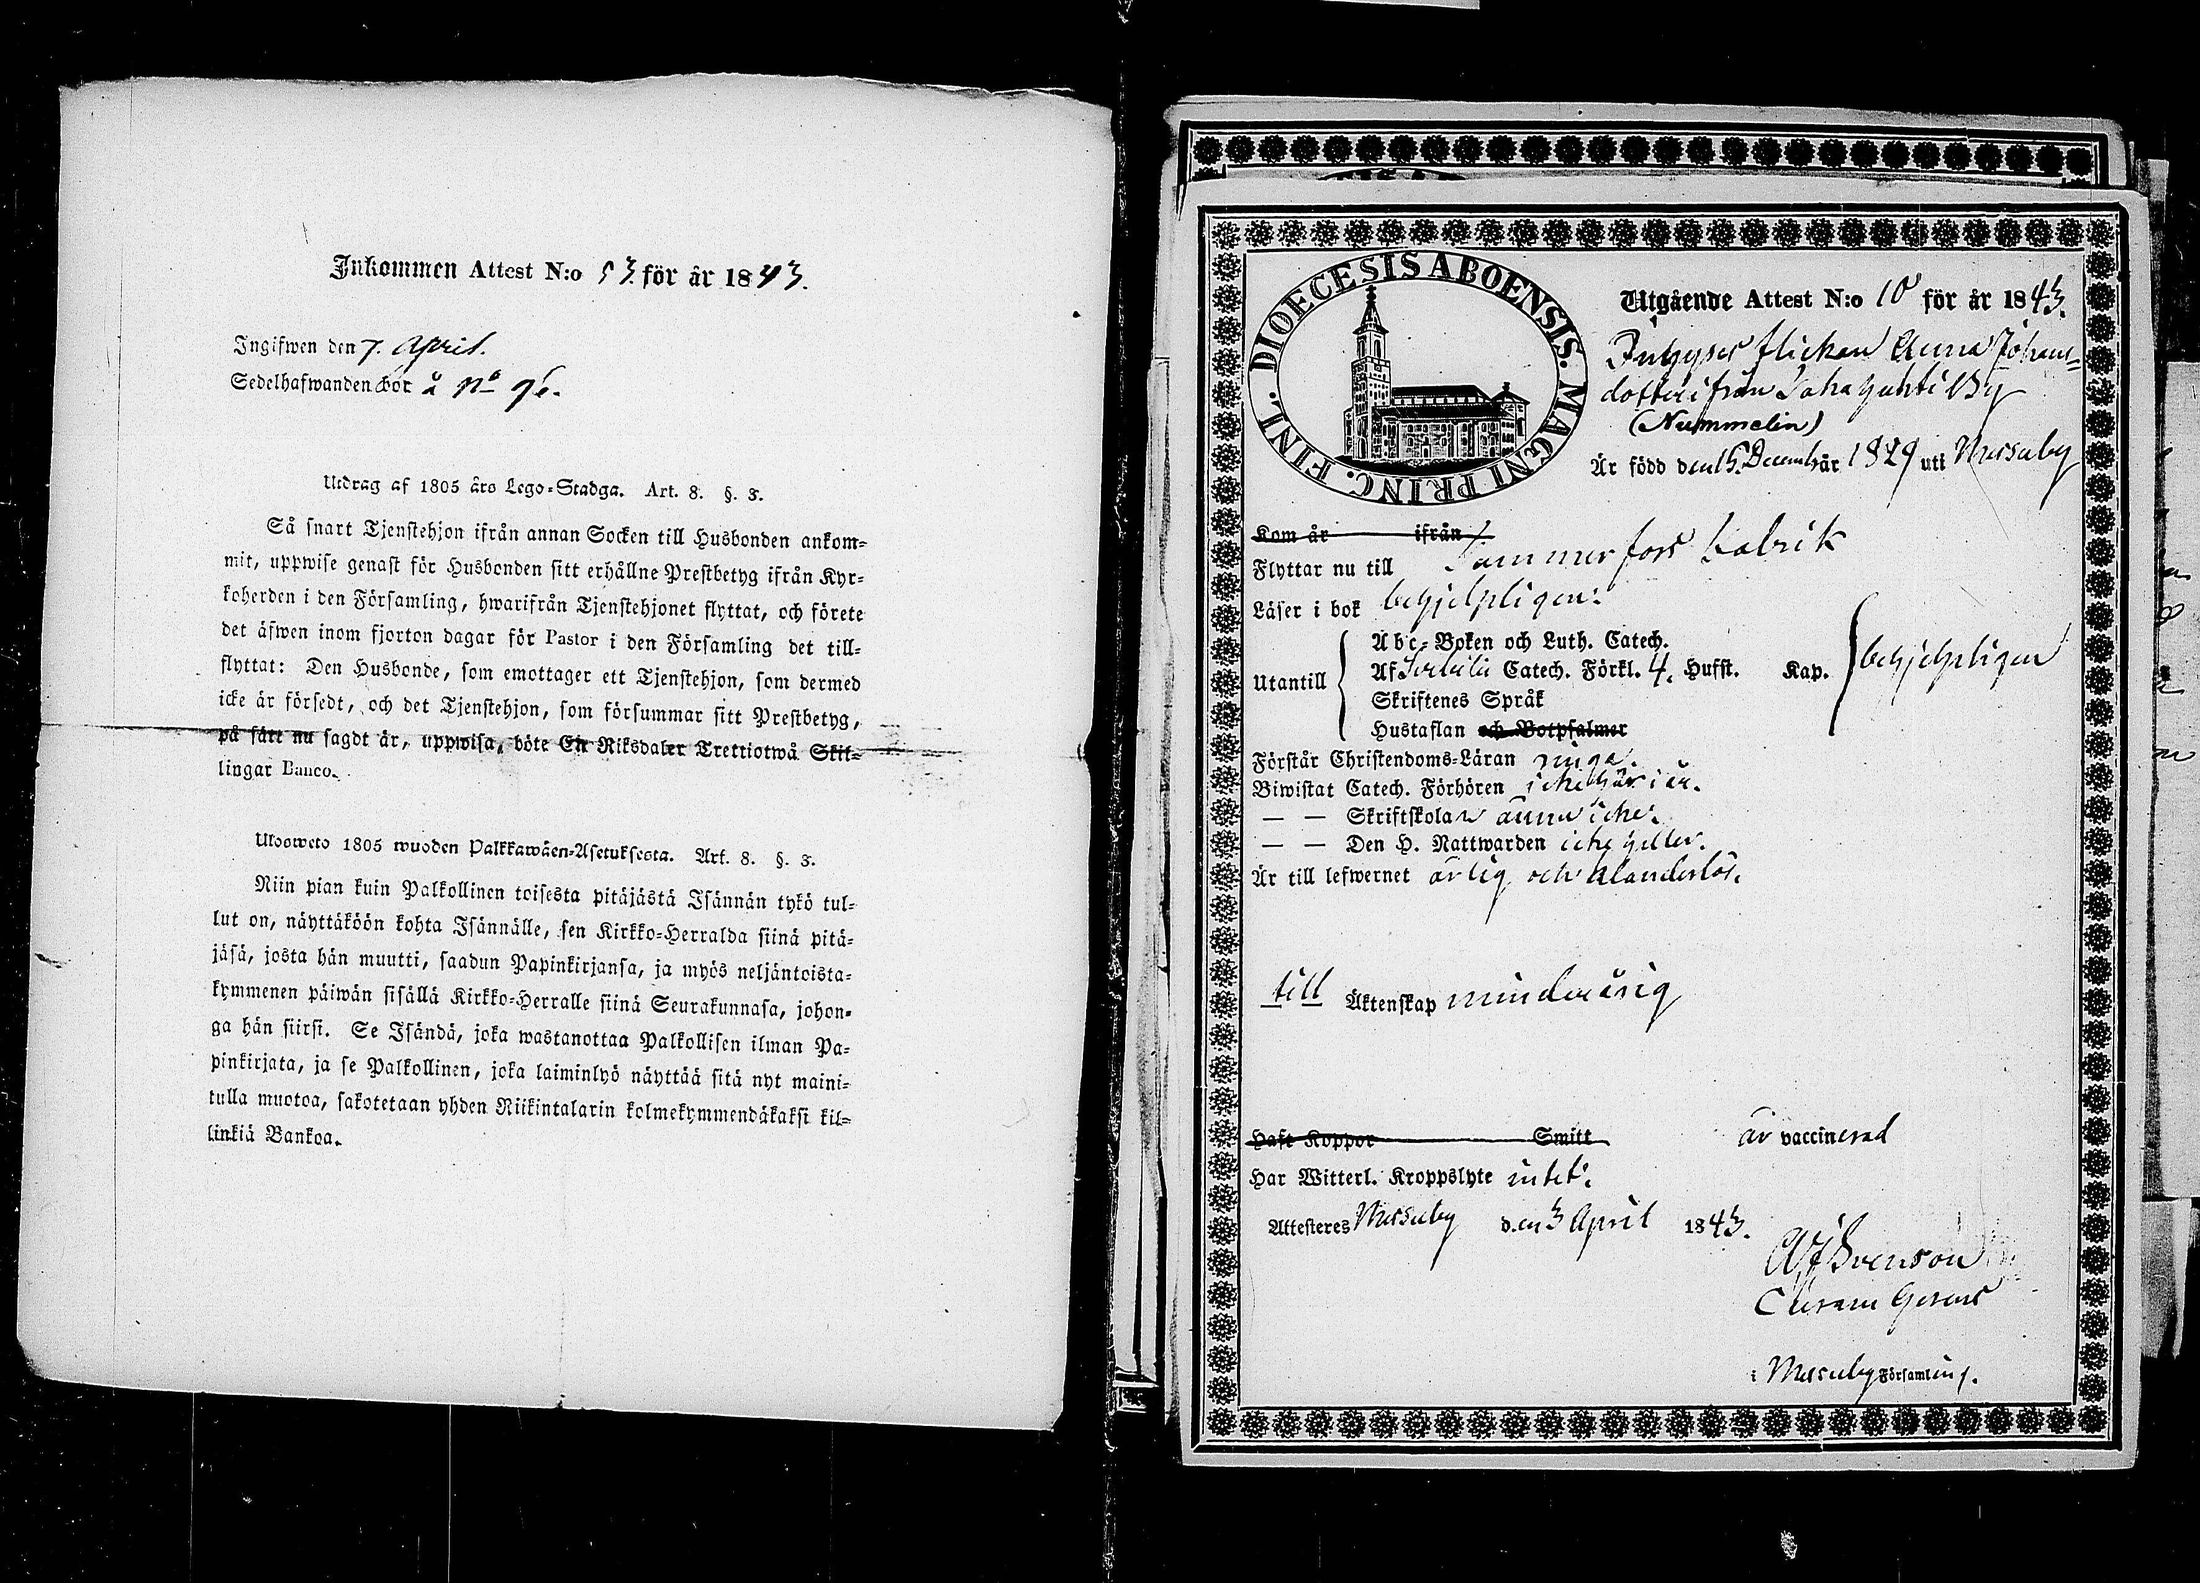 Inkommen Attest N:o 53. för år 1843.
Ingifwen den 7. April.
Sedelhafwanden bor å No 96.
Utdrag af 1805 års Lego-Stadga. Art. 8. §. 3.
Så snart Tjenstehjon ifrån annan Socken till Husbonden ankom-
mit, uppwise genast för Husbonden sitt erhållne Prestbetyg ifrån Kyr-
koherden i den Församling, hwarifrån Tjenstehjonet flyttat, och förete
det äfwen inom fjorton dagar för Pastor i den Församling det till-
flyttat: Den Husbonde, som emottager ett Tjenstehjon, som dermed
icke är försedt, och det Tjenstehjon, som försummar sitt Prestbetyg,
på sätt nu sagdt är, uppwisa, böte En Riksdaler Trettiotwå Skil-
lingar Banco.
Ulosweto 1805 wuoden Palkkawäen-Asetuksesta. Art. 8. §. 3.
Niin pian kuin Palkollinen toisesta pitäjästä Isännän tykö tul-
lut on, näyttäköön kohta Isännälle, sen Kirkko-Herralda siinä pitä-
jäsä, josta hän muutti, saadun Papinkirjansa, ja myös neljäntoista-
kymmenen päiwän sisällä Kirkko-Herralle siinä Seurakunnasa, johon-
ga hän siirsi. Se Isändä, joka wastanottaa Palkollisen ilman Pa-
pinkirjata, ja se Palkollinen, joka laiminlyö näyttää sitä nyt maini-
tulla muotoa, sakotetaan yhden Riikintalarin kolmekymmendäkaksi kil-
linkiä Bankoa.
DIOECESIS ABOENSIS. MAGNI PRINC. FINL.
Utgående Attest N:o 10 för år 1843.
Inhyses flickan Anna Johans-
dotter ifrån Tahayuhti By
(Nummelin)
Är född den 15. December 1829 uti Messuby
Kom år ifrån
Flyttar nu till Tammerfors Fabrik
Läser i bok behjelpligen.
Abc-Boken och Luth. Catech.
Utantill Af Svebilii Catech. Förkl. 4. Hufst. Kap. behjelpligen
Skriftenes Språk
Hustaflan och Botpsalmer
Förstår Christendoms-Läran ringa.
Biwistat Catech. Förhören icke här i år.
— — Skriftskolan ännu icke.
— — Den H. Nattwarden icke heller.
Är till lefwernet ärlig och klanderlös.
till Äktenskap minderårig
Haft Koppor Smitt är vaccinerad
Har Witterl. Kroppslyte intet.
Attesteres Messuby den 3 April 1843.
A F Svenson
Curam Gerens
i Messuby Församling.